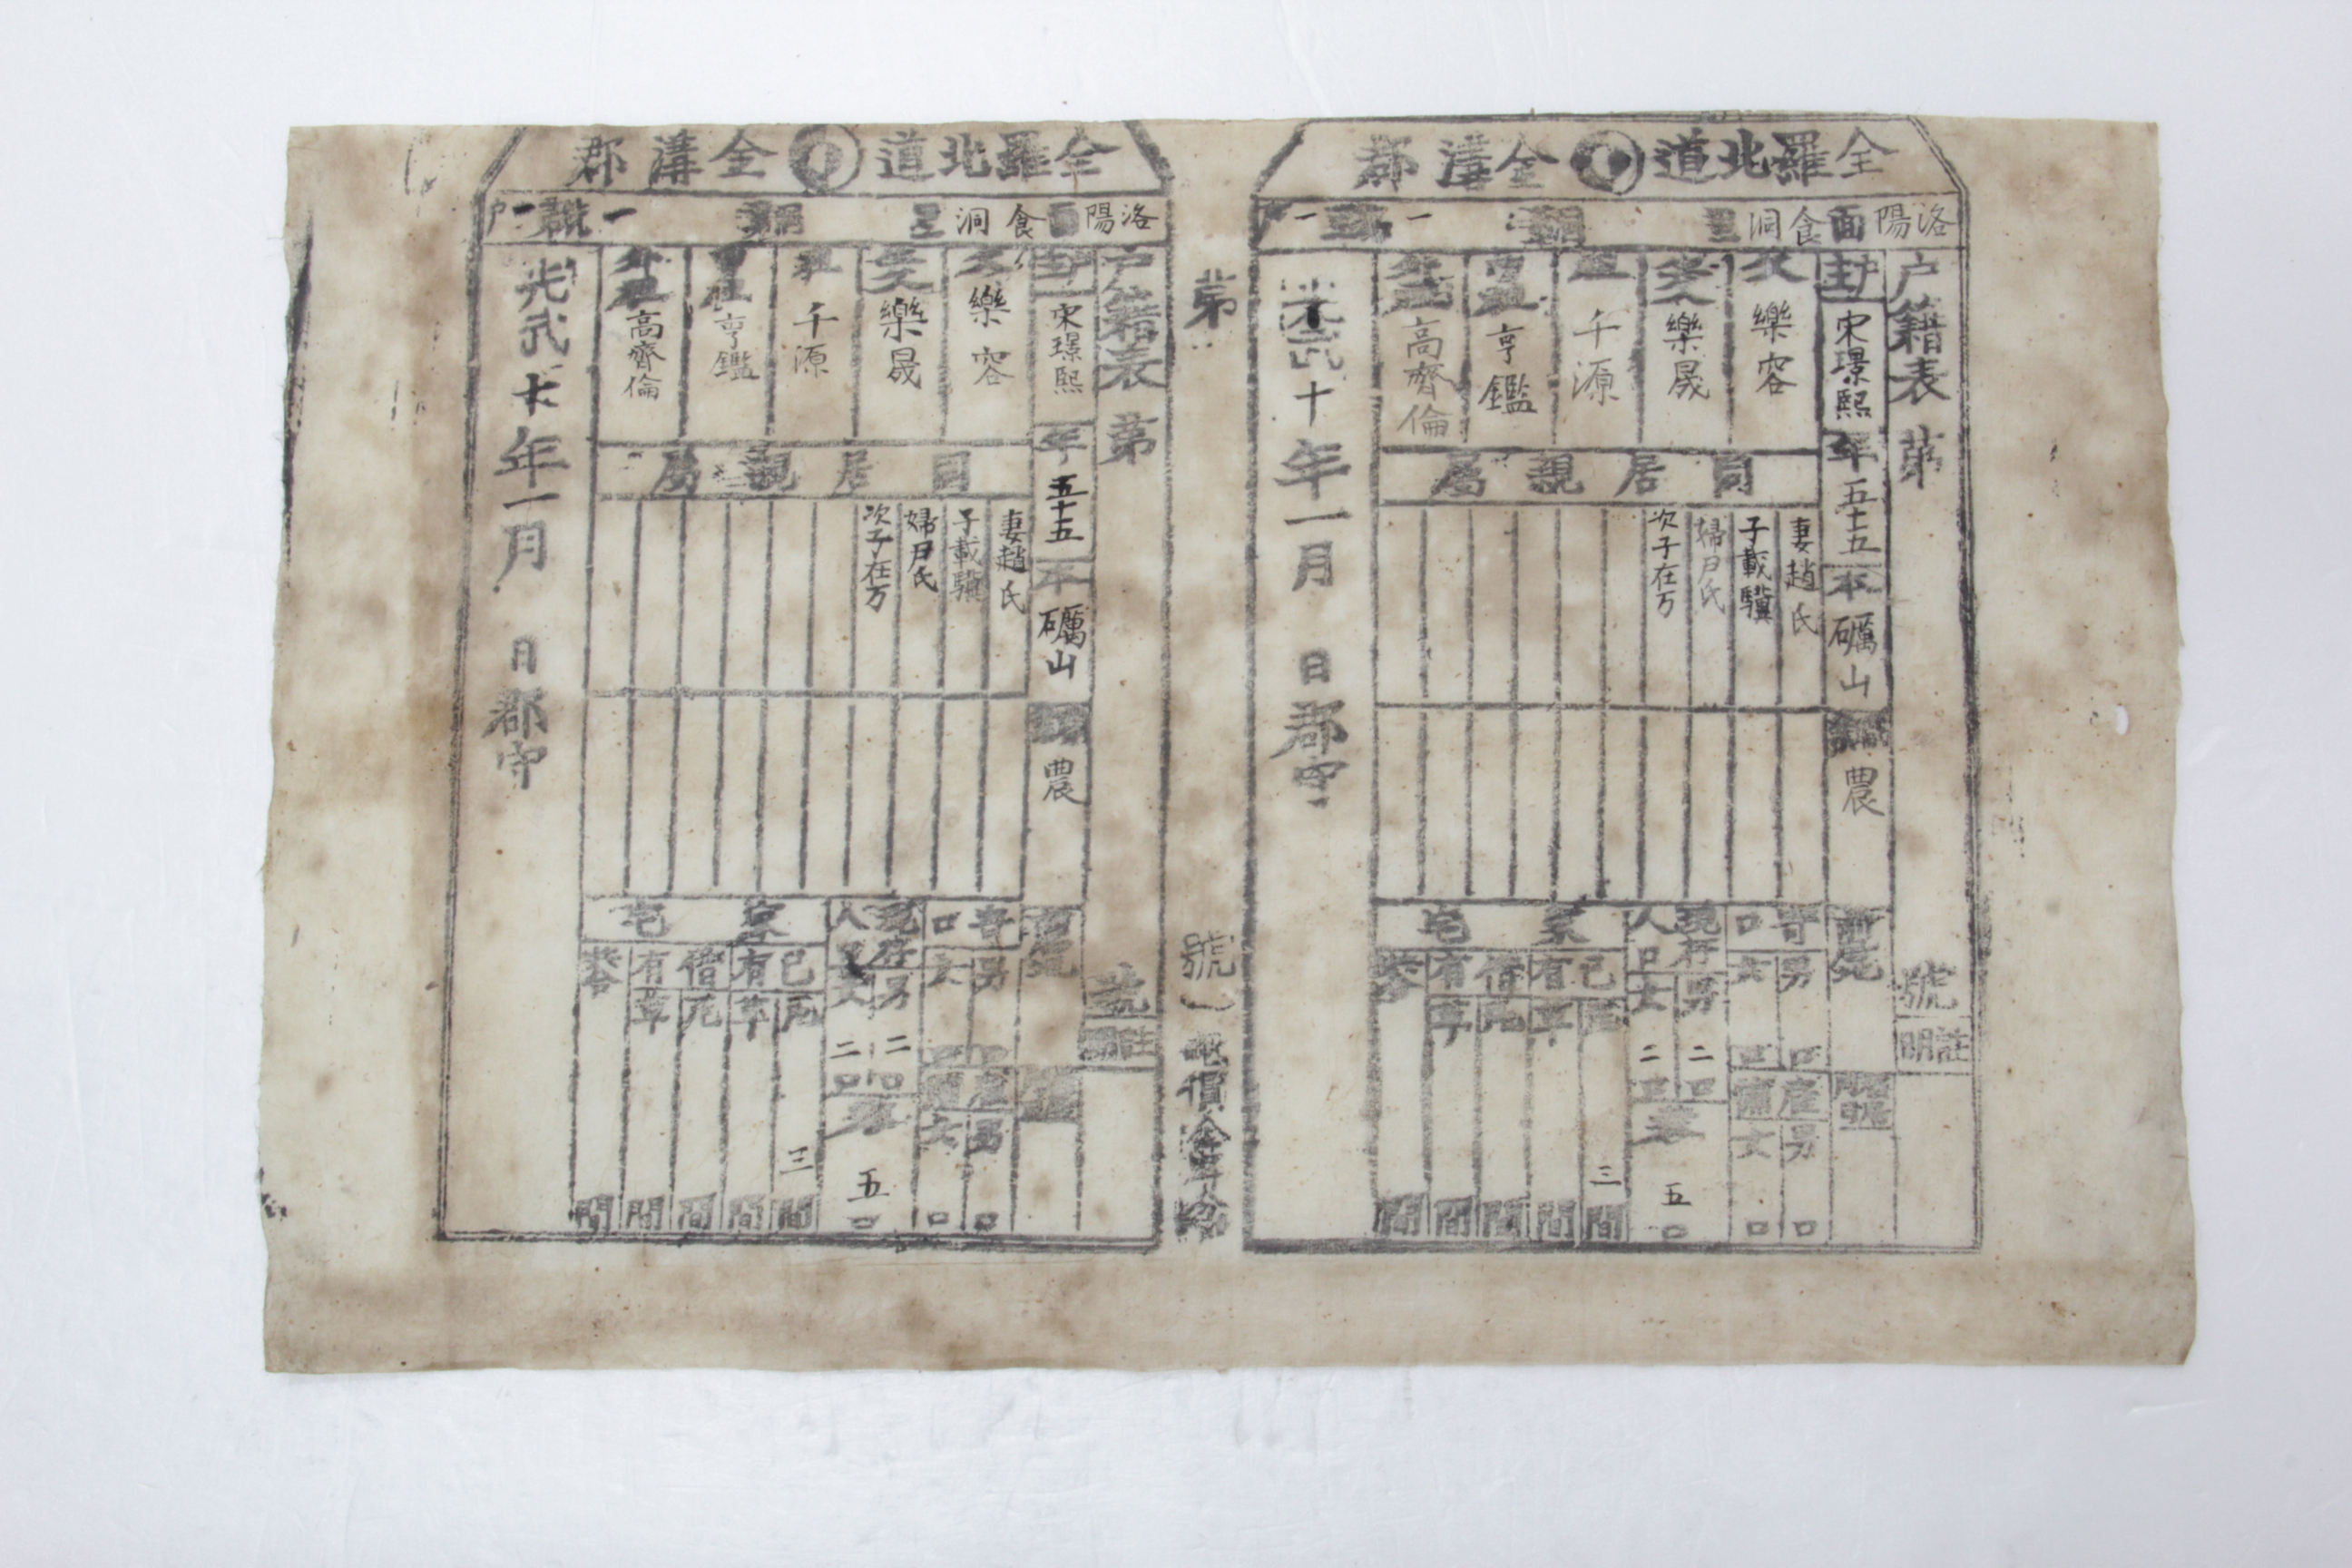 全羅北道 全溝郡
洛陽面 食洞里 統 一號 一戶
戶籍表 第 號
註明
戶主 宋璟熙 年 五十五 本 礪山 農
父 樂容
生父 樂晟
祖 千源
曾祖 亨鑑
外祖 高齊倫
同居親屬
妻趙氏
子載驥
婦尹氏
次子在万
前居
寄口 男 口 女 口
雇傭 男 口 女 口
現存人口 男 二口 女 二口
共 五口
家宅
己有 瓦 三間 草 間
借有 瓦 間 草 間
共 間
光武十年一月 日郡守
第 號
紙價金五分
全羅北道 全溝郡
洛陽面 食洞里 統 一號 一戶
戶籍表 第 號
註明
戶主 宋璟熙 年 五十五 本 礪山 農
父 樂容
生父 樂晟
祖 千源
曾祖 亨鑑
外祖 高齊倫
同居親屬
妻趙氏
子載驥
婦尹氏
次子在万
前居
寄口 男 口 女 口
雇傭 男 口 女 口
現存人口 男 二口 女 二口
共 五口
家宅
己有 瓦 三間 草 間
借有 瓦 間 草 間
共 間
光武十年一月 日郡守